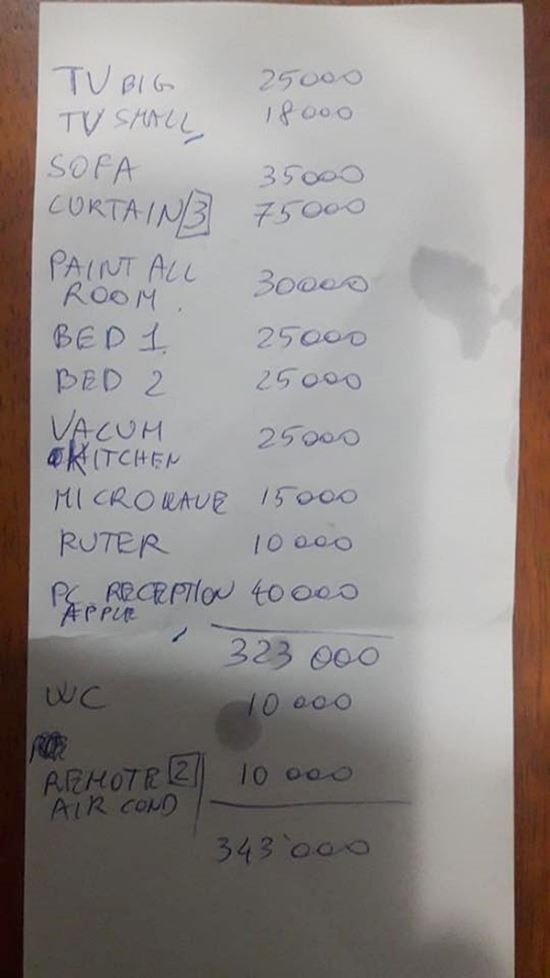 TV BIG 25000
TV SMALL 18000
SOFA 35000
CURTAIN 3 75000
PAINT ALL
ROOM. 30000
BED 1 25000
BED 2 25000
VACUM 25000
KITCHEN
MICROWAVE 15000
RUTER 10000
PC RECEPTION 40000
APPLE
323 000
WC 10 000
REMOTE 2 10 000
AIR COND
343'000